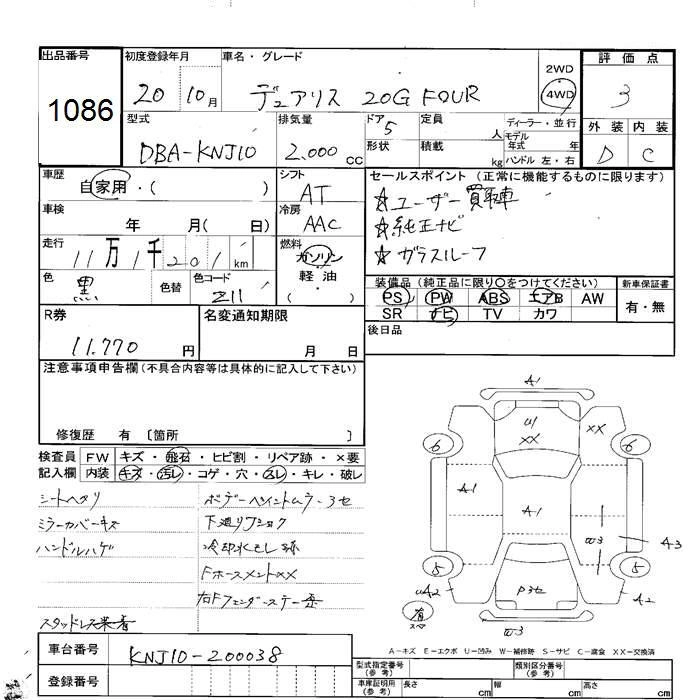 出品番号
1086
初度登録年月
20 10月
車名・グレード
デュアリス 20G FOUR
2WD
4WD
評価点
3
外装 内装
D C
型式
DBA-KNJ10
排気量
2.000 cc
ドア
5
形状
定員
人
積載
kg
ディーラー・並行
モデル
年式 年
ハンドル 左・右
車歴
自家用・( )
シフト
AT
車検
年 月( 日)
冷房
AAC
走行
11万1千201 km
燃料
ガソリン
軽油
( )
色
黒
色替
色コード
Z11
セールスポイント (正常に機能するものに限ります)
☆ユーザー買取車
☆純正ナビ
☆ガラスルーフ
装備品 (純正品に限り○をつけてください)
PS PW ABS エアB AW
SR ナビ TV カワ
新車保証書
有・無
後日品
R券
11.770 円
名変通知期限
月 日
注意事項申告欄 (不具合内容等は具体的に記入して下さい)
修復歴 有 〔箇所 〕
検査員
記入欄
FW キズ・飛石・ヒビ割・リペア跡・×要
内装 キズ・汚レ・コゲ・穴・スレ・キレ・破レ
シートヘタリ
ミラーカバーキズ
ハンドルハゲ
スタッドレス装着
ボデーペイントムラ・3セ
下廻りJショク
冷却水モレ跡
Fホースメント××
右Fフェンダーステー歪
A1
U1
XX
XX
6
6
A1
A1
W3
A3
5
5
UA2
A2
P3セ
有
スペア
W-3
A-キズ E-エクボ U-凹み W-補修跡 S-サビ C-腐食 XX-交換済
車台番号
KNJ10-200038
登録番号
型式指定番号
(参考)
類別区分番号
(参考)
車庫証明用
(参考)
長さ cm
幅 cm
高さ cm